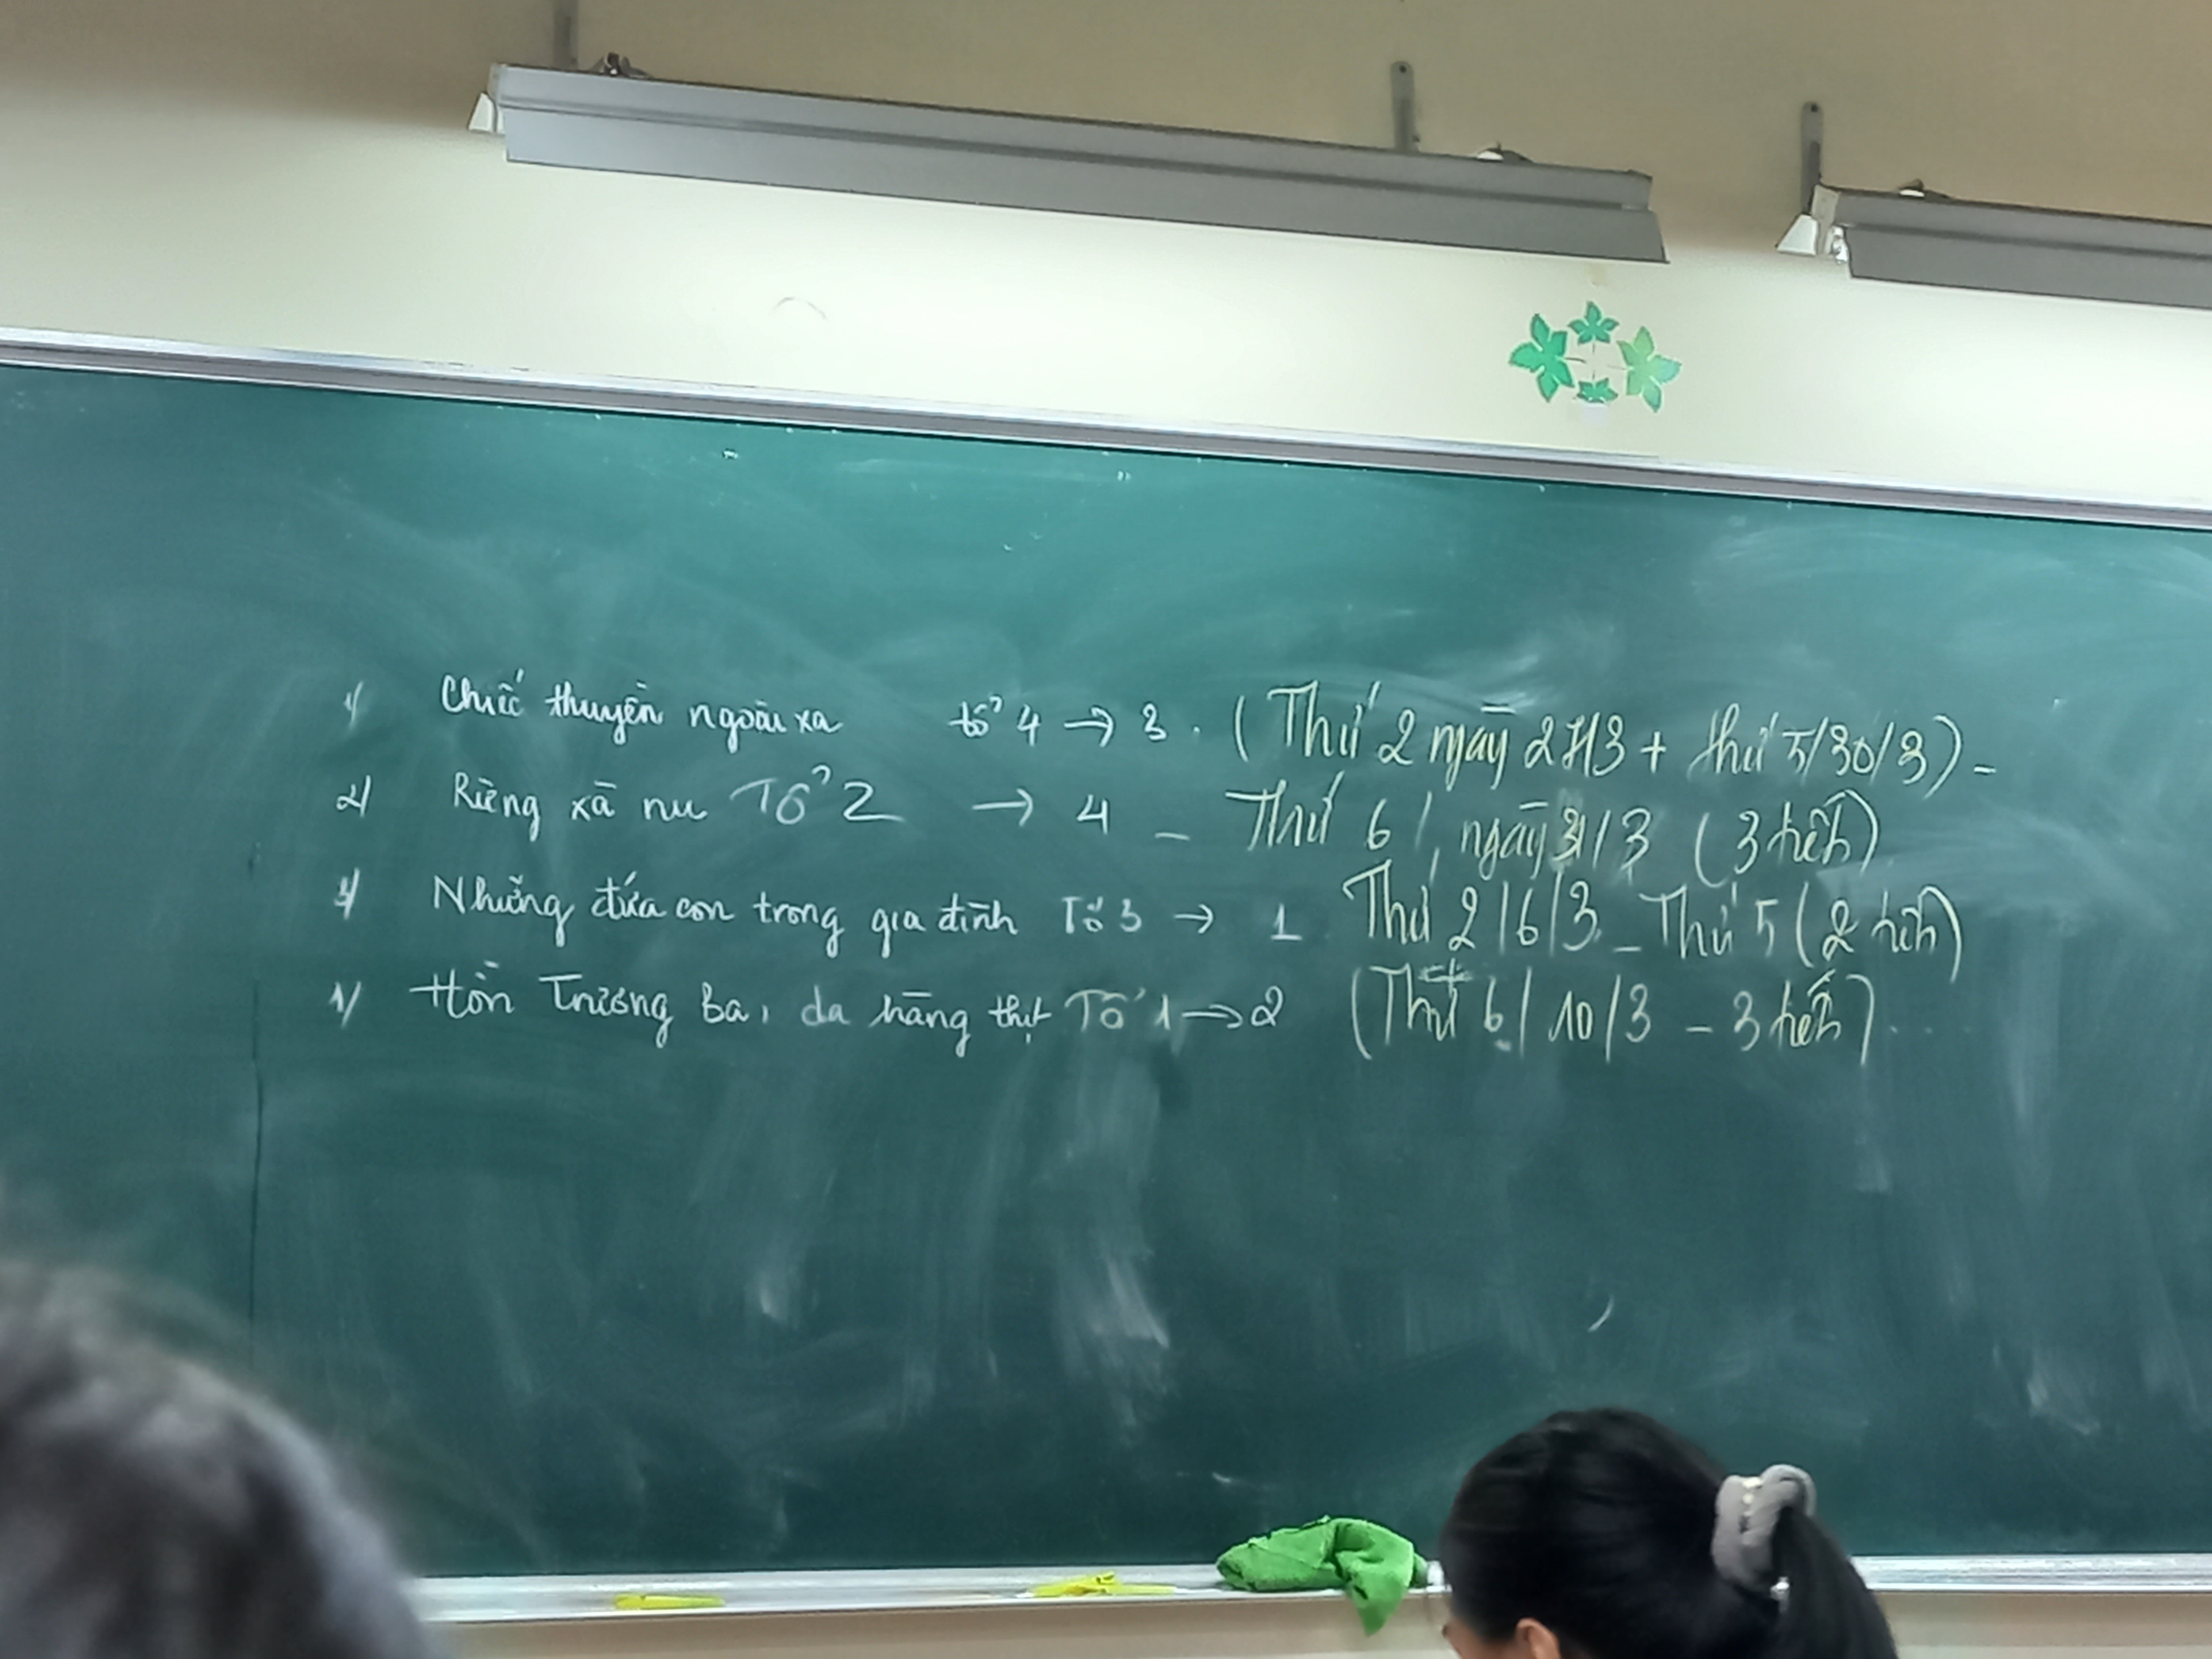 1/ Chiếc thuyền ngoài xa tổ 4 → 3. (Thứ 2 ngày 27/3 + thứ 5/30/3) -
2/ Rừng xà nu Tổ 2 → 4 - Thứ 6/ ngày 31/3 (3 tiết)
3/ Những đứa con trong gia đình Tổ 3 → 1 Thứ 2/6/3 - Thứ 5 (2 tiết)
4/ Hồn Trương Ba, da hàng thịt Tổ 1 → 2 (Thứ 6/10/3 - 3 tiết) ....